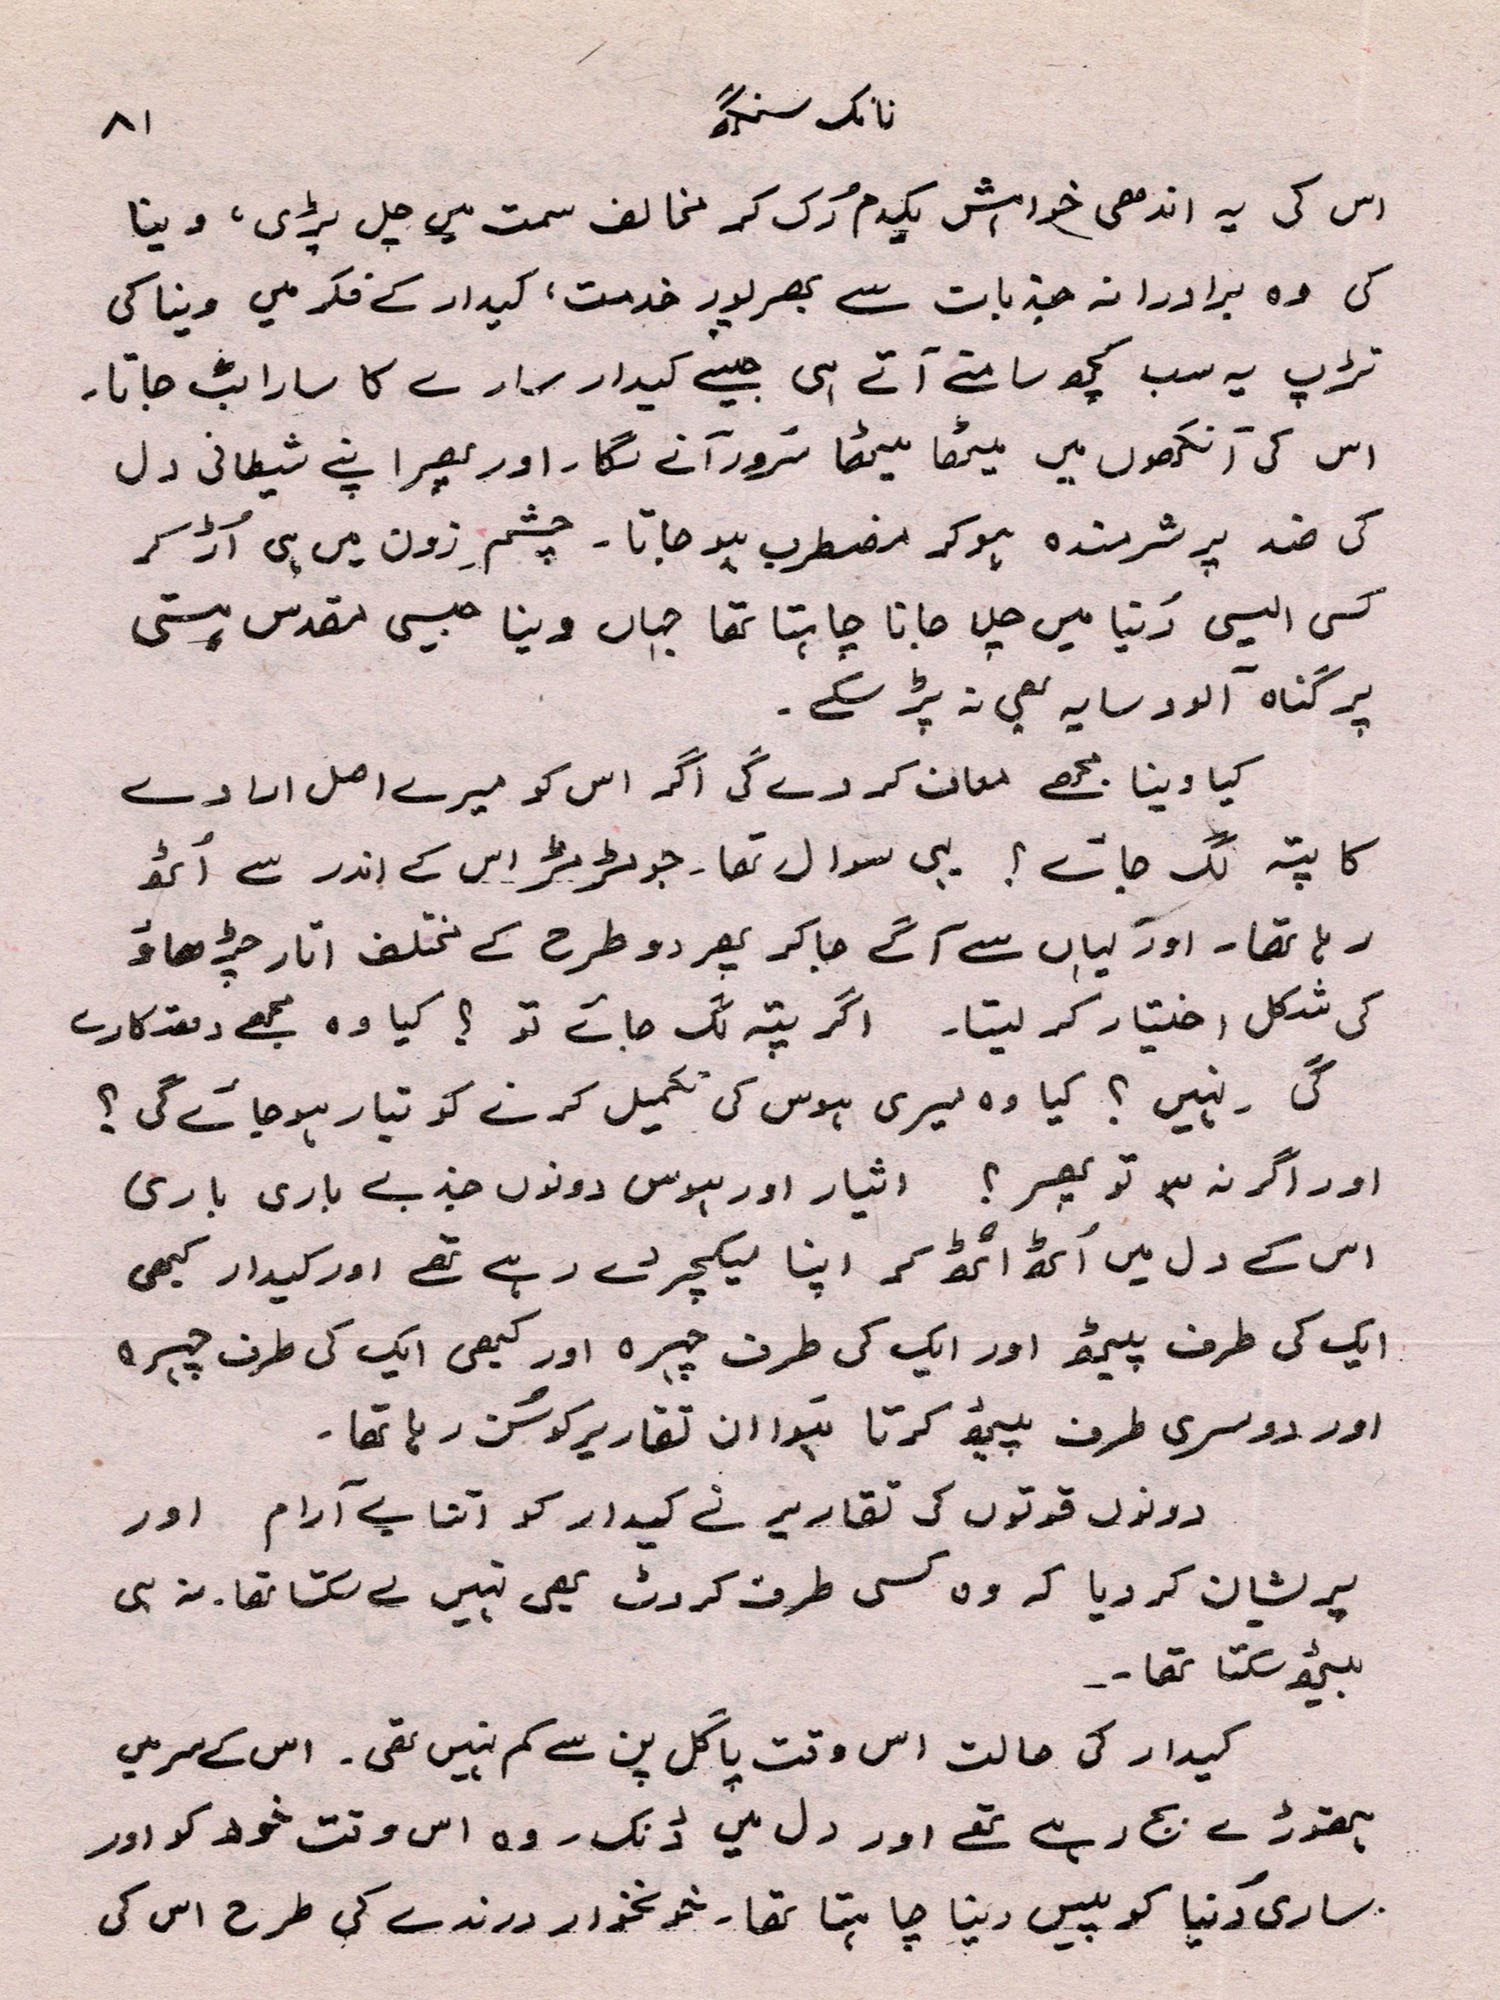 نانک سنگھ ۸۱
اس کی یہ اندھی خواہش یکدم رُک کر مخالف سمت میں چل پڑی، وینا
کی وہ برادرانہ جذبات سے بھرپور خدمت، کیدار کے فکر میں وینا کی
تڑپ یہ سب کچھ سامنے آتے ہی جیسے کیدار سارے کا سارا بٹ جاتا۔
اس کی آنکھوں میں میٹھا میٹھا سُرور آنے لگا۔ اور پھر اپنے شیطانی دل
کی ضد پر شرمندہ ہوکر مضطرب ہو جاتا۔ چشمِ زون میں ہی اُڑ کر
کسی ایسی دُنیا میں چلا جانا چاہتا تھا جہاں وینا جیسی مقدس ہستی
پر گناہ آلود سایہ بھی نہ پڑ سکے۔
کیا وینا مجھے معاف کر دے گی اگر اس کو میرے اصل ارادے
کا پتہ لگ جائے؟ یہی سوال تھا۔ جو مڑ مڑ اس کے اندر سے اُٹھ
رہا تھا۔ اور یہاں سے آگے جا کر پھر دو طرح کے مختلف اتار چڑھاؤ
کی شکل اختیار کر لیتا۔ اگر پتہ لگ جائے تو ؟ کیا وہ مجھے دھتکارے
گی ۔ نہیں ؟ کیا وہ میری ہوس کی تکمیل کرنے کو تیار ہو جائے گی ؟
اور اگر نہ ہو تو پھر ؟ اثیار اور ہوس دونوں جذبے باری باری
اس کے دل میں اُٹھ اٹھ کر اپنا لیکچر دے رہے تھے اور کیدار کبھی
ایک کی طرف پیٹھ اور ایک کی طرف چہرہ اور کبھی ایک کی طرف چہرہ
اور دوسری طرف پیٹھ کرتا ہوا ان تقاریر کو سُن رہا تھا۔
دونوں قوتوں کی تقاریر نے کیدار کو اتنا بے آرام اور
پریشان کر دیا کہ وہ کسی طرف کروٹ بھی نہیں لے سکتا تھا۔ نہ ہی
بیٹھ سکتا تھا۔
کیدار کی حالت اس وقت پاگل پن سے کم نہیں تھی۔ اس کے سر میں
ہتھوڑے بج رہے تھے اور دل میں ڈنک۔ وہ اس وقت خود کو اور
ساری دُنیا کو پیس دینا چاہتا تھا۔ خونخوار درندے کی طرح اس کی